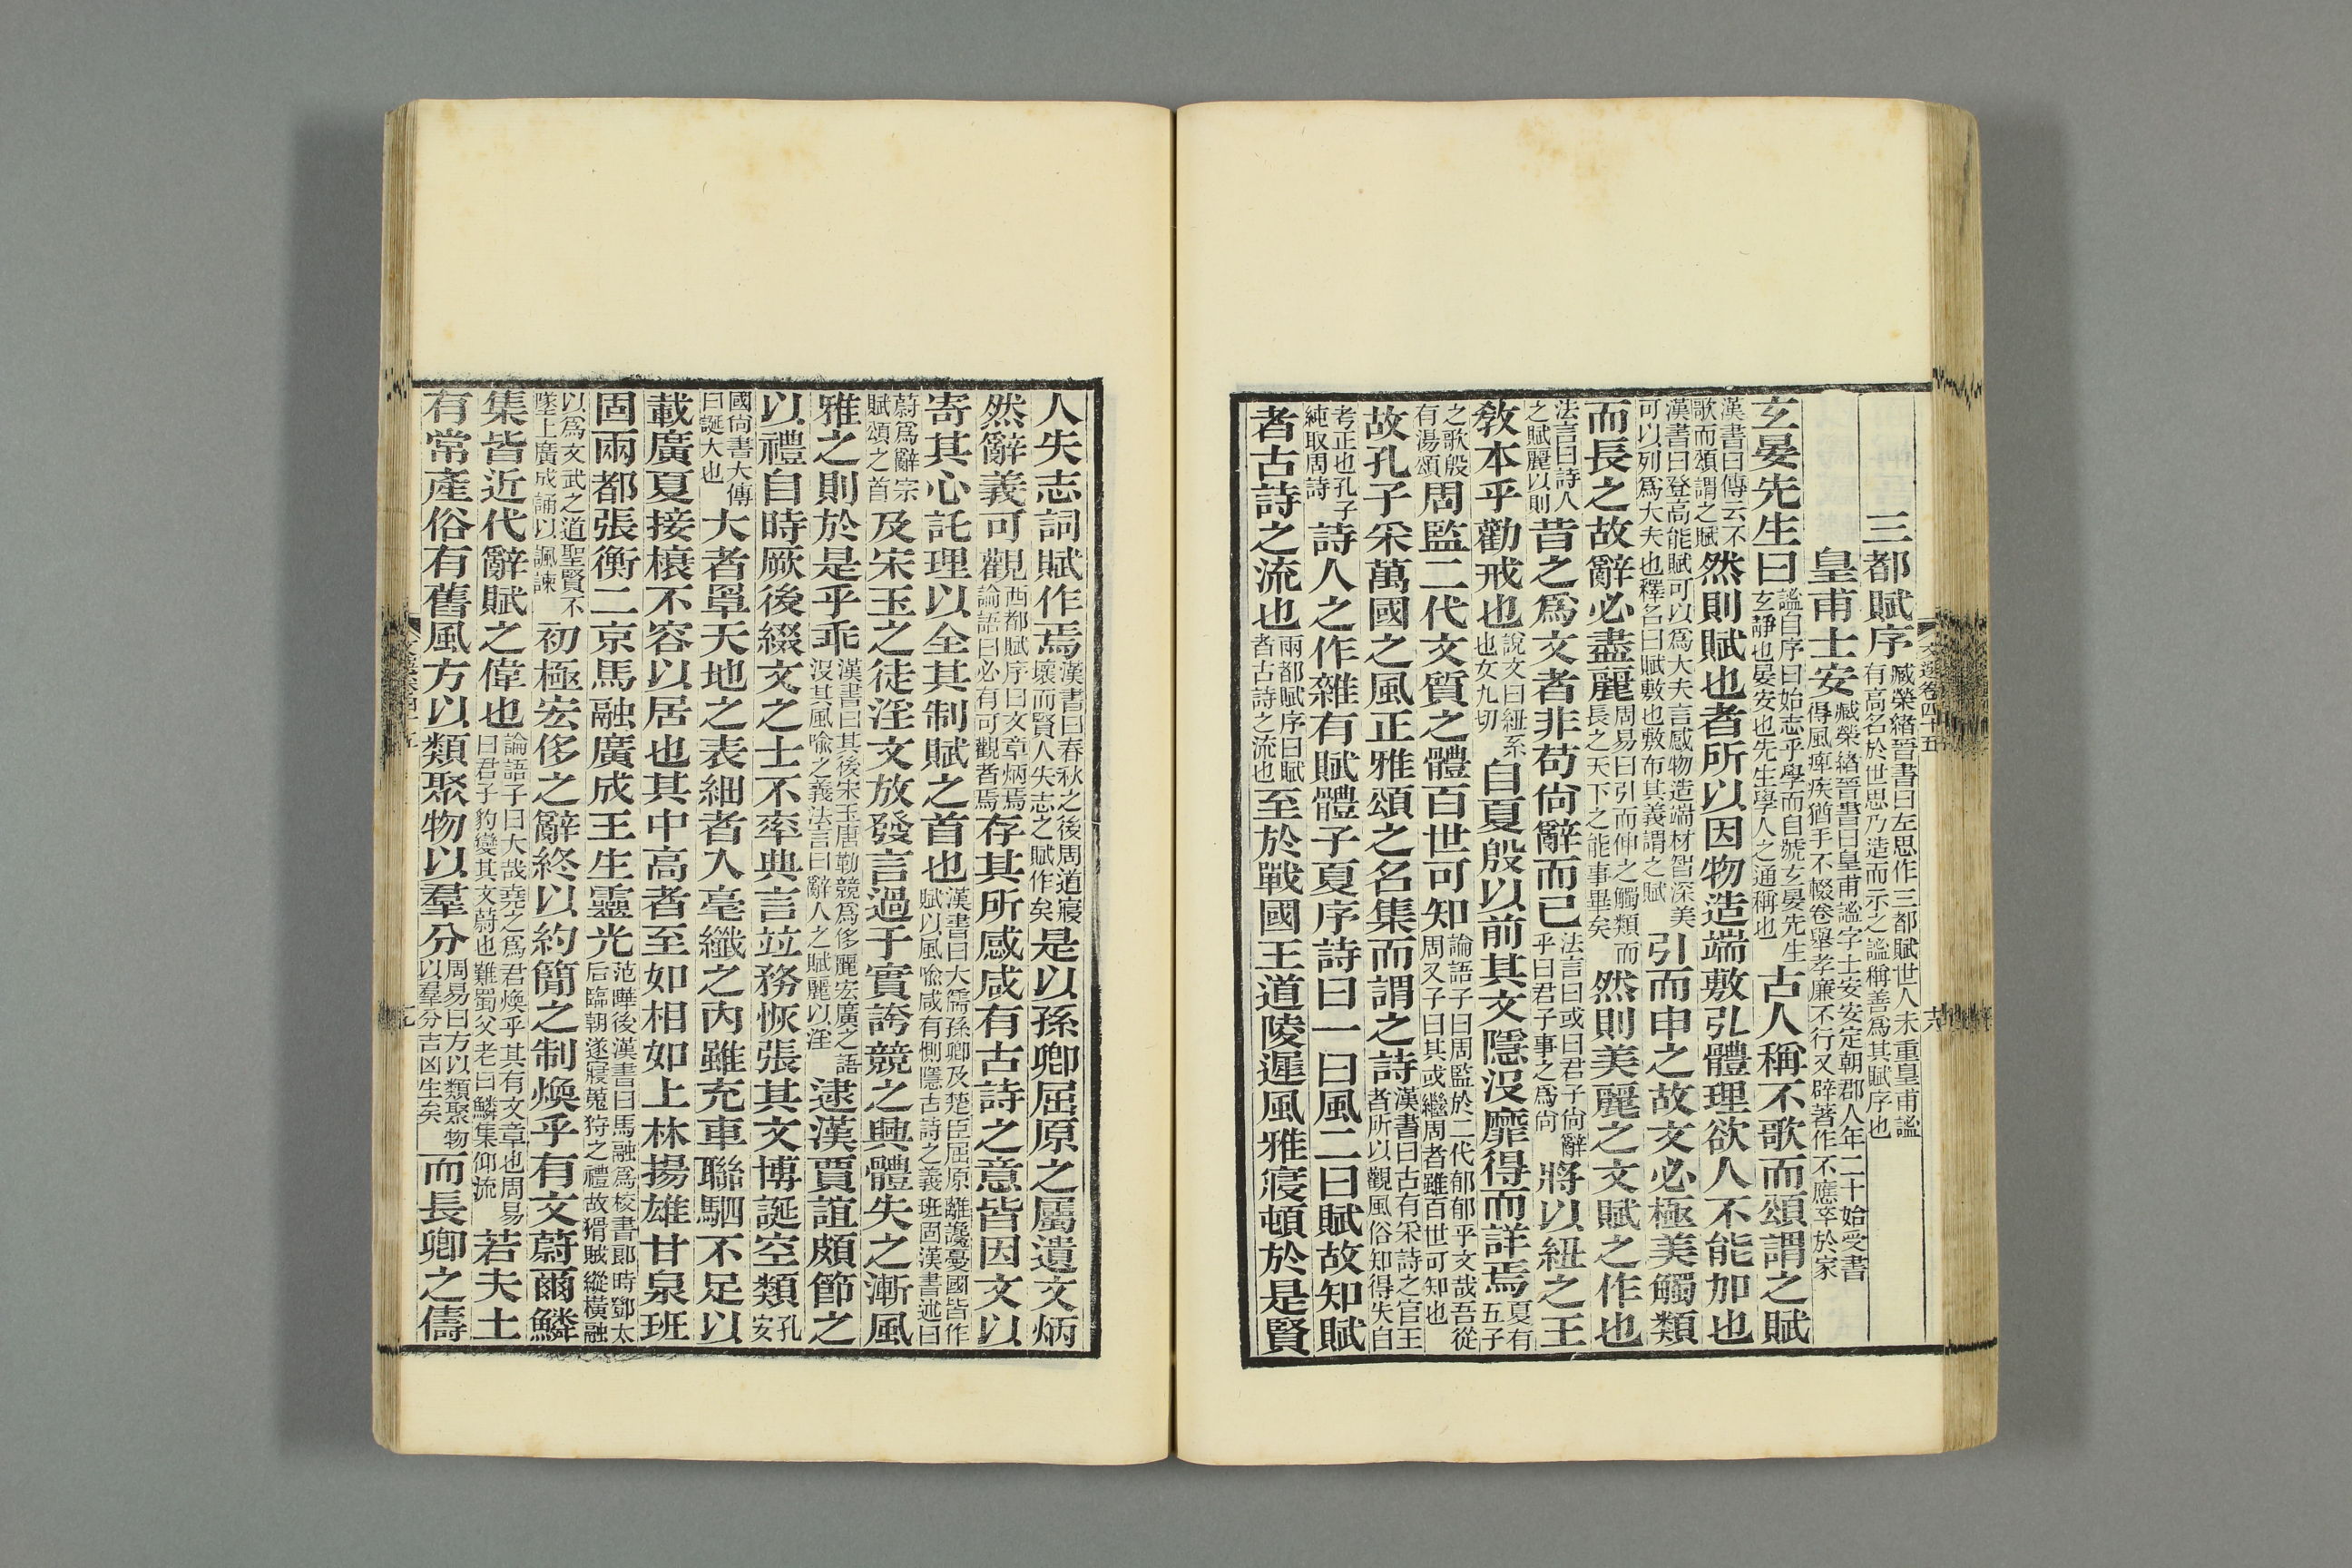 三都賦序臧榮緒晉書曰左思作三都賦世人未重皇甫謐有高名於世思乃造而示之謐稱善爲其賦序也
皇甫士安臧榮緒晉書曰皇甫謐字士安安定朝郡人年二十始受書得風痺疾猶手不輟卷舉孝廉不行又辟著作不應卒於家
玄晏先生曰謐自序曰始志乎學而自號玄晏先生玄靜也晏安也先生學人之通稱也古人稱不歌而頌謂之賦
漢書曰傳云不歌而頌謂之賦然則賦也者所以因物造端敷弘體理欲人不能加也
漢書曰登高能賦可以爲大夫言感物造端材智深美可以列爲大夫也釋名曰賦敷也敷布其義謂之賦引而申之故文必極美觸類
而長之故辭必盡麗周易曰引而伸之觸類而長之天下之能事畢矣然則美麗之文賦之作也
法言曰詩人之賦麗以則昔之爲文者非苟尙辭而已法言曰或曰君子尙辭乎曰君子事之爲尙將以紐之王
敎本乎勸戒也說文曰紐系也女九切自夏殷以前其文隱沒靡得而詳焉夏有五子
之歌殷有湯頌周監二代文質之體百世可知論語子曰周監於二代郁郁乎文哉吾從周又子曰其或繼周者雖百世可知也
故孔子采萬國之風正雅頌之名集而謂之詩漢書曰古有采詩之官王者所以觀風俗知得失自
考正也孔子純取周詩詩人之作雜有賦體子夏序詩曰一曰風二曰賦故知賦
者古詩之流也兩都賦序曰賦者古詩之流也至於戰國王道陵遲風雅寖頓於是賢
文選卷四十五
十六
人失志詞賦作焉漢書曰春秋之後周道寖壞而賢人失志之賦作矣是以孫卿屈原之屬遺文炳
然辭義可觀西都賦序曰文章炳焉論語曰必有可觀者焉存其所感咸有古詩之意皆因文以
寄其心託理以全其制賦之首也漢書曰大儒孫卿及楚臣屈原離讒憂國皆作賦以風喻咸有惻隱古詩之義班固漢書述曰
蔚爲辭宗賦頌之首及宋玉之徒淫文放發言過于實誇競之興體失之漸風
雅之則於是乎乖漢書曰其後宋玉唐勒競爲侈麗宏廣之語沒其風喻之義法言曰辭人之賦麗以淫逮漢賈誼頗節之
以禮自時厥後綴文之士不率典言竝務恢張其文博誕空類孔安
國尙書大傳曰誕大也大者罩天地之表細者入毫纖之內雖充車聯駟不足以
載廣夏接榱不容以居也其中高者至如相如上林揚雄甘泉班
固兩都張衡二京馬融廣成王生靈光范曄後漢書曰馬融爲校書郎時鄧太后臨朝遂寢蒐狩之禮故猾賊縱橫融
以爲文武之道聖賢不墜上廣成誦以諷諫初極宏侈之辭終以約簡之制煥乎有文蔚爾鱗
集皆近代辭賦之偉也論語子曰大哉堯之爲君煥乎其有文章也周易曰君子豹變其文蔚也難蜀父老曰鱗集仰流若夫土
有常產俗有舊風方以類聚物以羣分周易曰方以類聚物以羣分吉凶生矣而長卿之儔